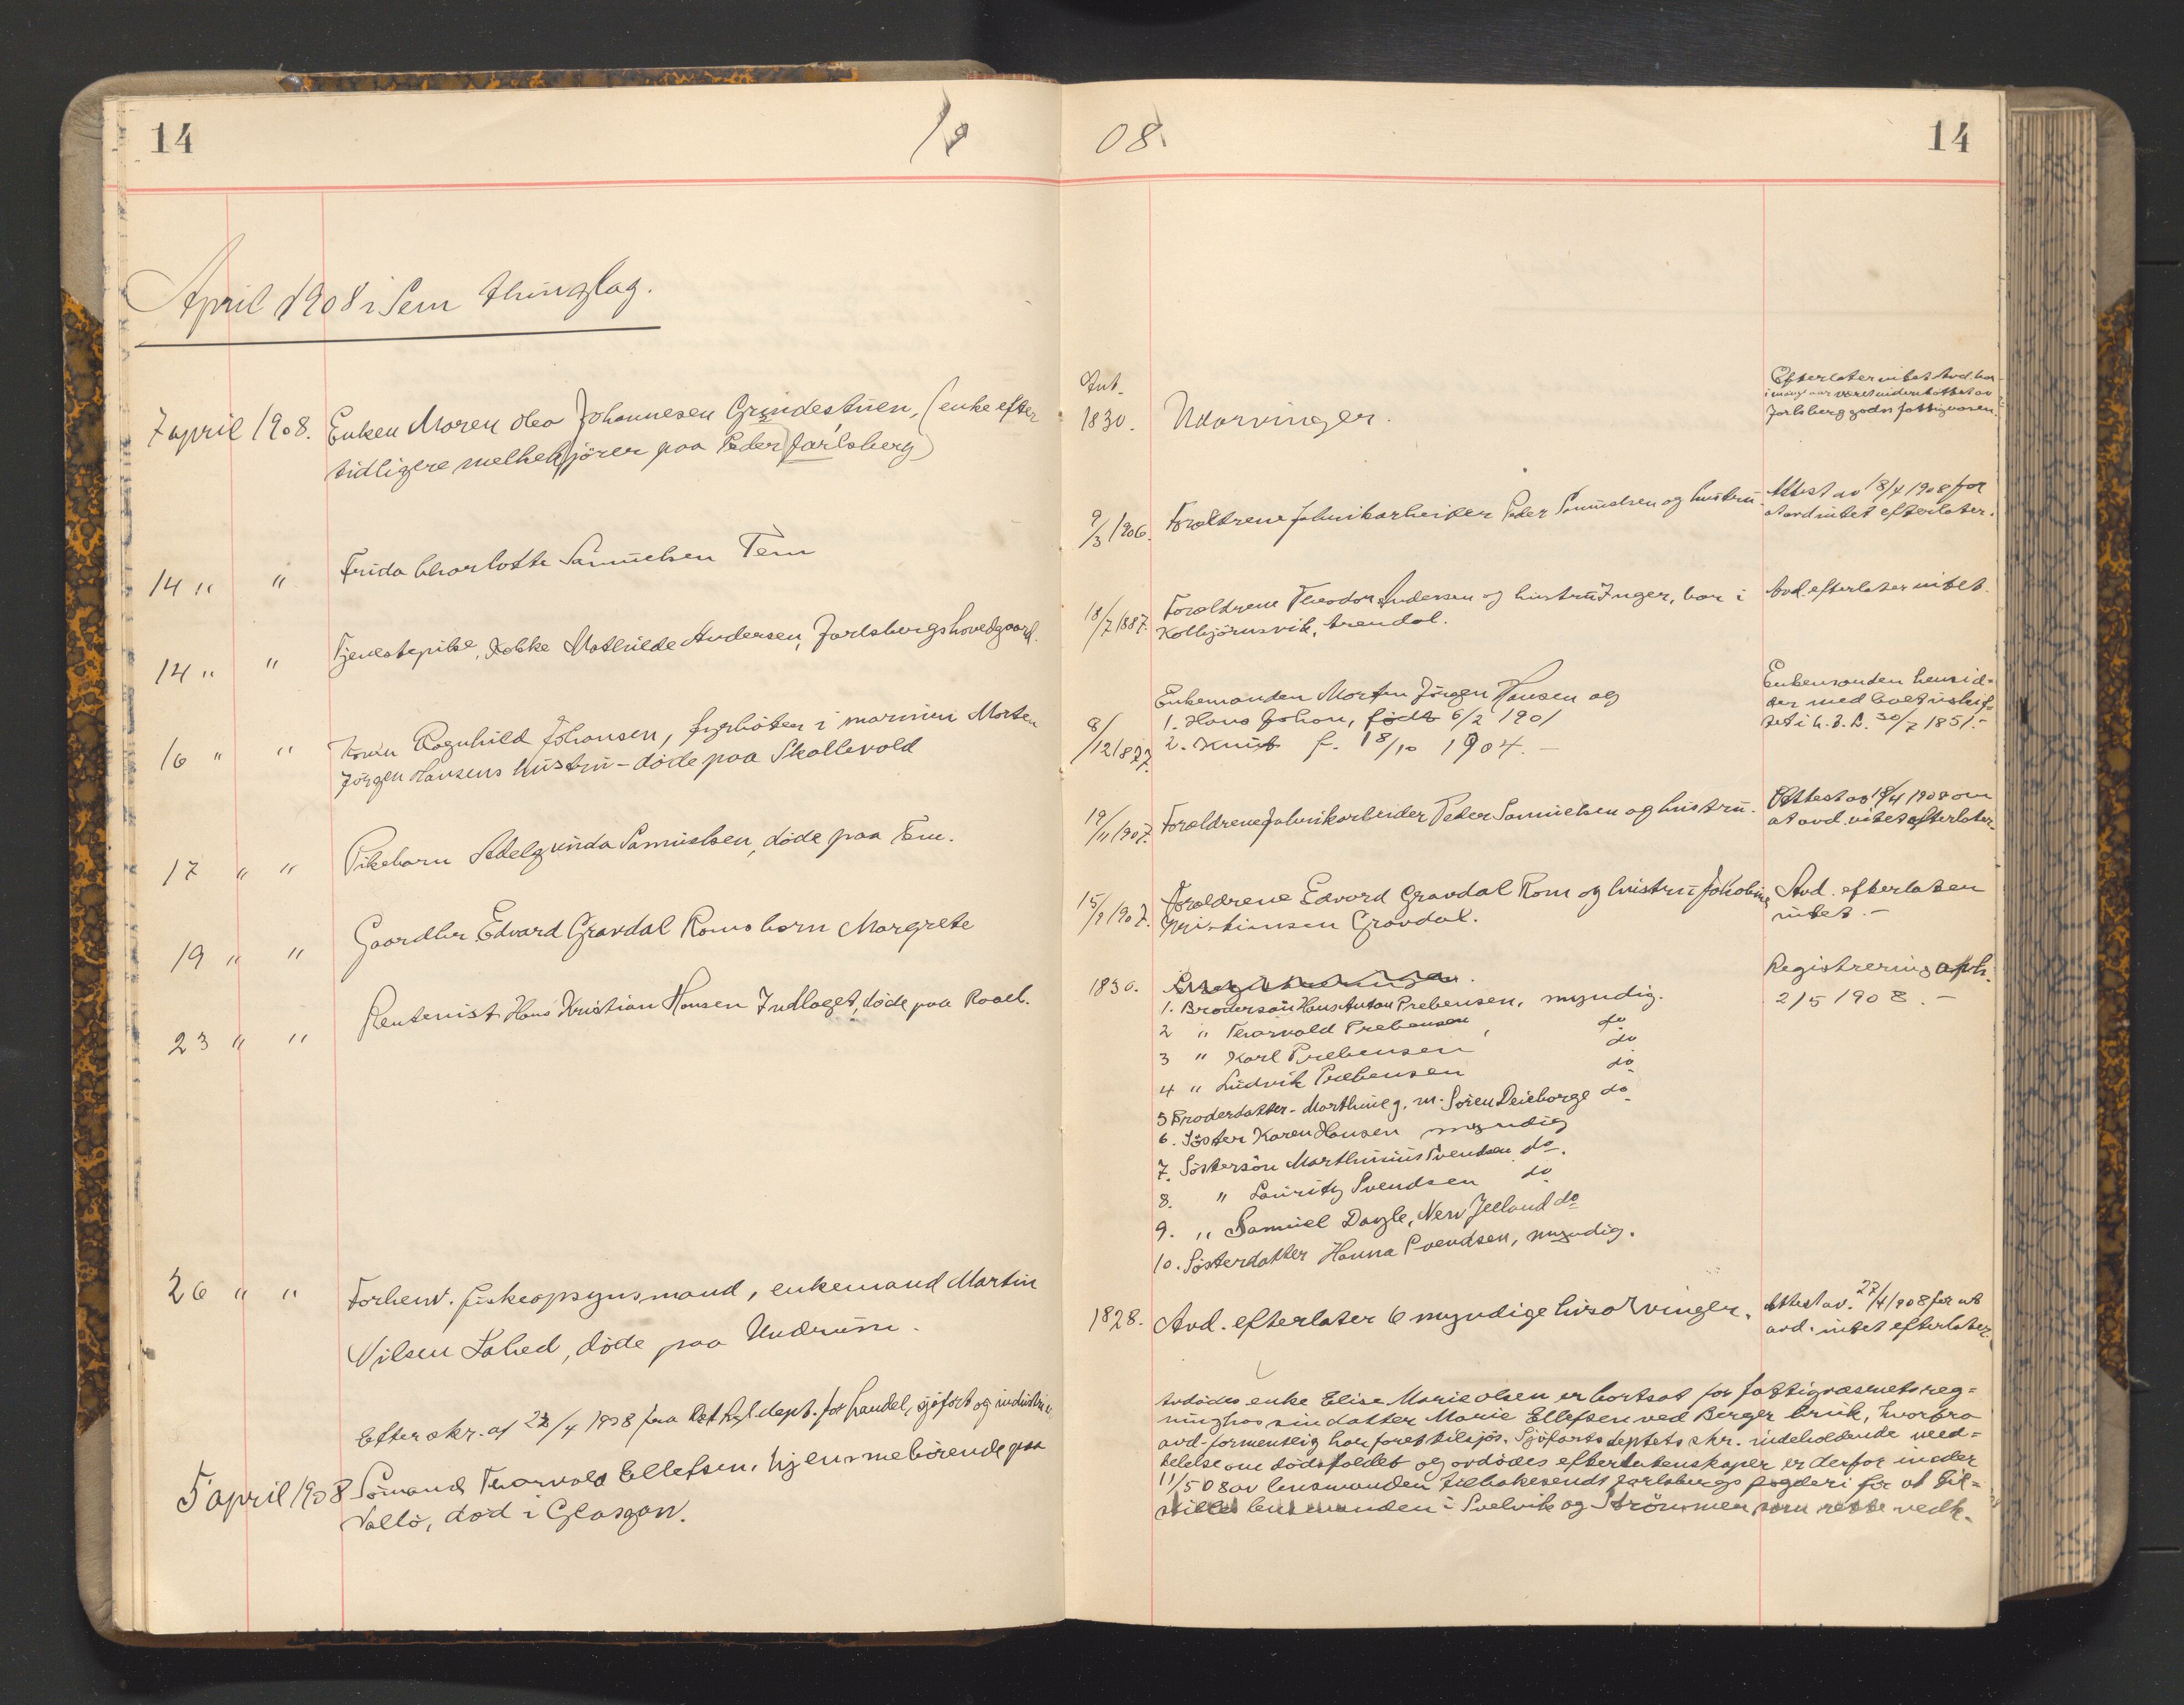 14
19
08.
14
April 1908 i Sem thinglag.
7 april 1908. Enken Maren Olea Johannesen Gryndestuen, (enke efter
tidligere melkekjörer paa Peder Jarlsberg)
14 " " Frida Charlotte Samuelsen Tem
14 " " Tjenestepike, Mathilde Andersen, Jarlsbergs hovedgaard.
16 " " Ragnhild Johansen, fyrböter i marinen Morten
Jörgen Hansens hustru - döde paa Skallevold
17 " " Pikebarn Adelgunda Samuelsen, döde paa Tem.
19 " " Gaardbr Edvard Gravdal Roms barn Margrete
23 " " Rentenist Hans Kristian Hansen Indlaget, döde paa Rael.
26 " " Forhenv. fiskeopsynsmand, enkemand Martin
Nilsen Lahed, döde paa Undrum.
Efter skr. af 22/4 1908 fra Det Kgl. dept. for handel, sjöfart og industri
5 april 1908 Sömand Thorvald Ellefsen, hjemmehörende paa
Vallö, död i Glasgow.
1830. Utarvinger.
Efterlater intet. Avd. har
i mange aar været understöttet av
Jarlsberg gods fattigvæsen.
9/3 1906. Forældrene fabrikarbeider Peder Samuelsen og hustru.
Attest av 18/4 1908 for
at avd intet efterlater.
18/7 1887. Forældrene Theodor Andersen og hustru Inger, bor i
Kolbjörnsvik, Arendal.
Avd. efterlater intet.
8/12 1877. Enkemanden Morten Jörgen Hansen og
1. Hans Johan, födt 6/2 1901
2. Knut f. 18/10 1904. -
Enkemanden hensid-
der med boet uskif-
tet i h. t. L. 30/7 1851. -
19/11 1907. Forældrene fabrikarbeider Peder Samuelsen og hustru.
Attest av 18/4 1908 om
at avd. intet efterlater.
15/9 1907. Forældrene Edvard Gravdal Rom og hustru Jakobine
Kristiansen Gravdal.
Avd. efterlater
intet. -
1830.
1. Brodersön Hans Anton Prebensen, myndig.
2 " Thorvald Prebensen, do
3 " Karl Prebensen do
4 " Ludvik Prebensen do
5 Broderdatter - Marthine g. m. Sören Deieborge do
6. Söster Karen Hansen myndig
7. Söstersön Marthinius Svendsen do.
8. " Lauritz Svendsen do
9. " Samuel Dagle, New Zeeland do
10. Sösterdatter Hanna Svendsen, myndig.
Registrering aph.
2/5 1908. -
1828. Avd. efterlater 6 myndige livsarvinger.
Attest av. 27/4 1908 for at
avd. intet efterlater.
Avdödes enke Elise Marie Olsen er bortsat for fattigvæsenets reg-
ning hos sin datter Marie Ellefsen ved Berger bruk, hvorfra
avd. formentlig har faret tilsjös. Sjöfartsdeptets skr. indeholdende med-
delelse om dödsfaldet og avdödes efterlatenskaper er derfor under
11/5 08 av lensmanden tilbakesendt Jarlsbergs fogderi for at til-
stilles lensmanden i Svelvik og Strömmen som rette vedk.